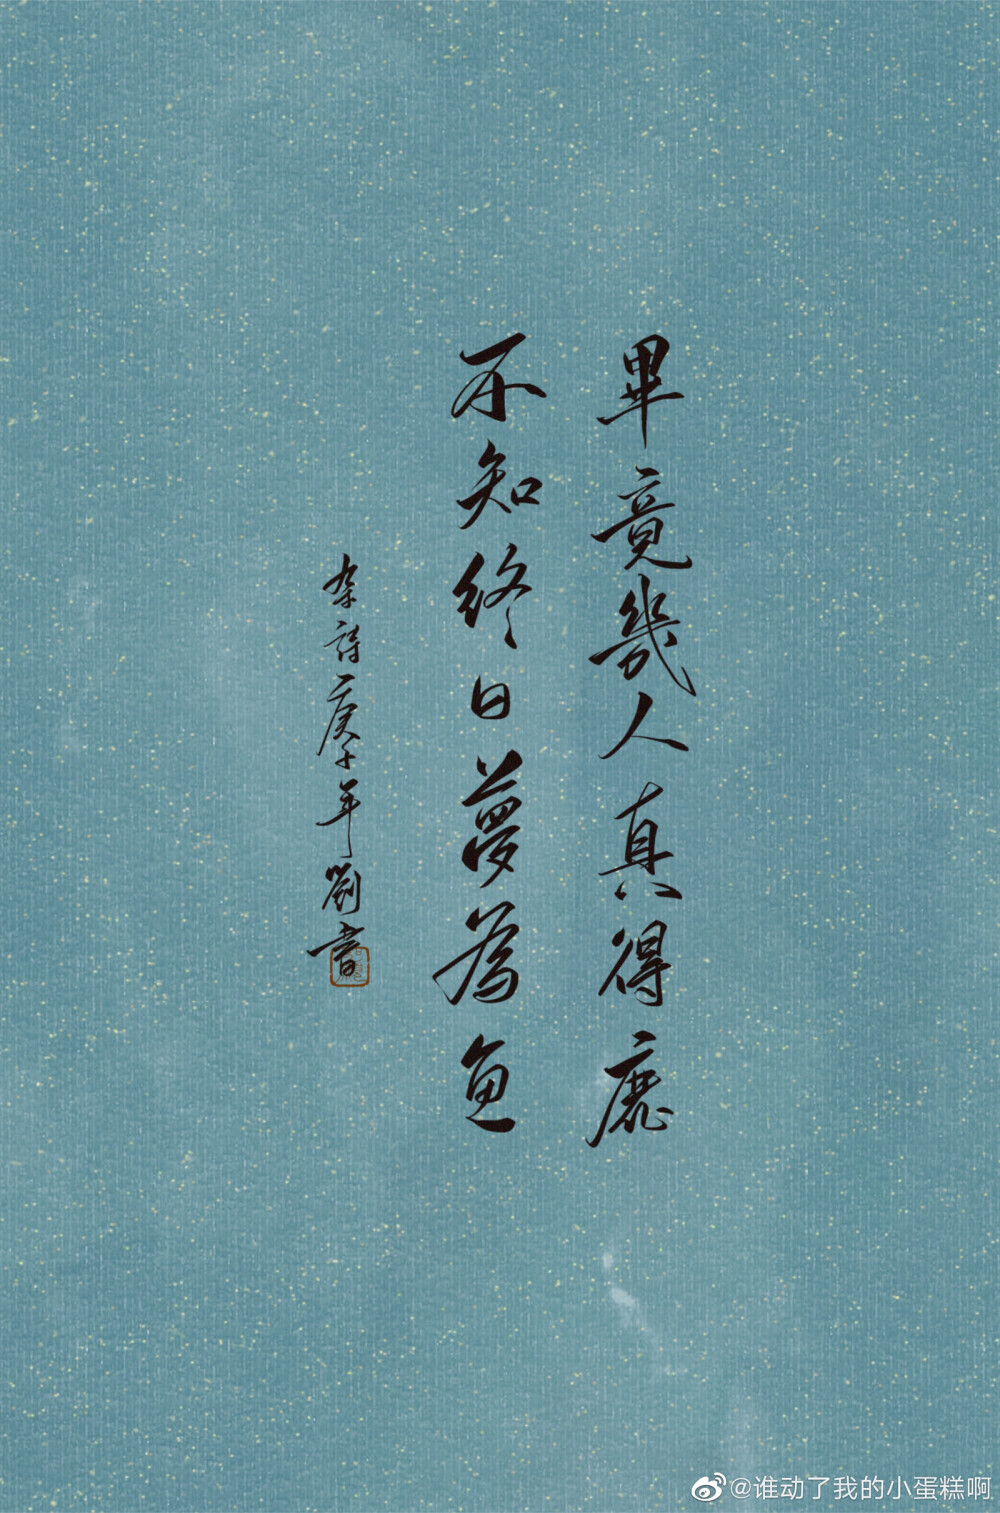 畢竟幾人真得鹿
不知終日夢為魚
杂詩庚子年劉書
@谁动了我的小蛋糕啊